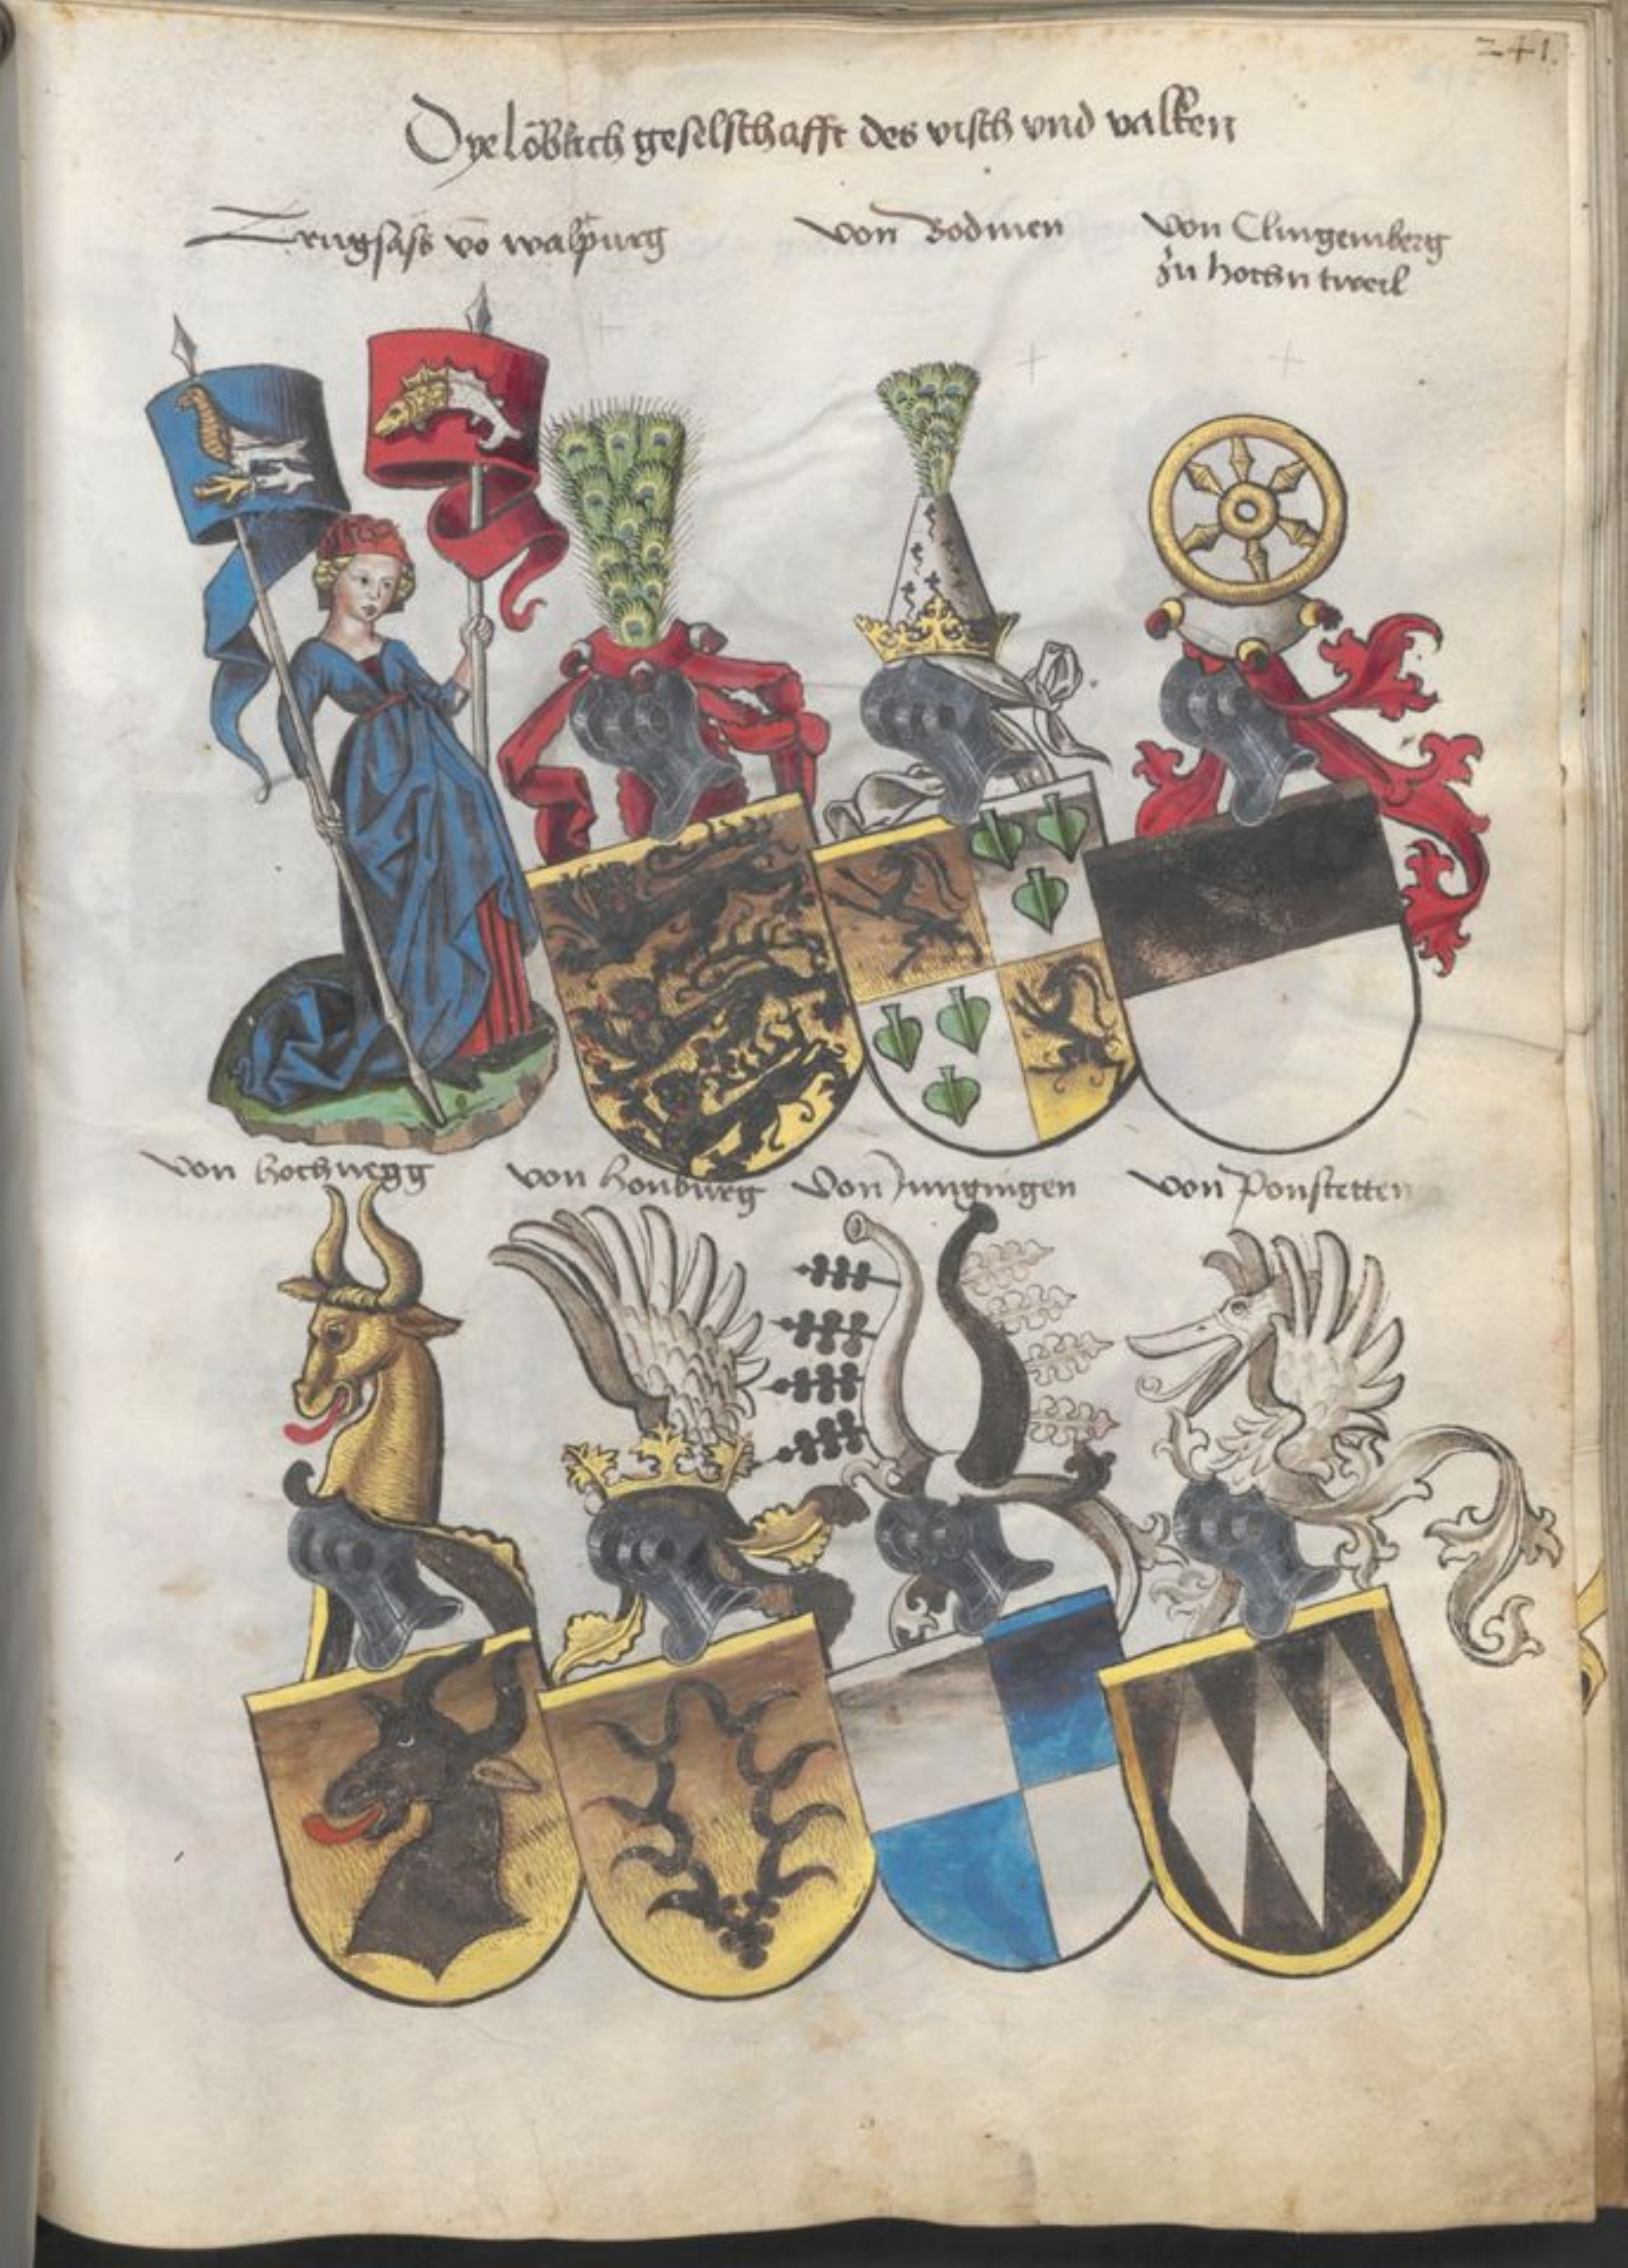 241.
Dye löblich geselschafft des visch vnd valken
Trugsäss vō walpurg
von Bodmen
von Clingemberg
zu hochn tweil
von hochnegg
von honburg
von Jungingen
von Ponstetten